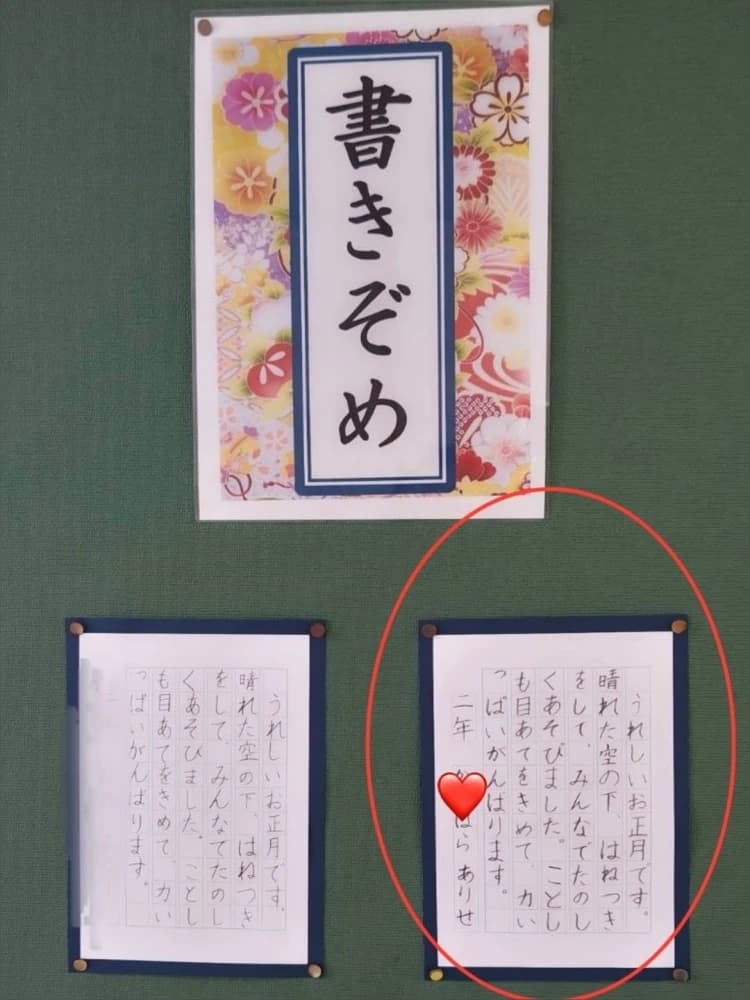 書きぞめ
うれしいお正月です。
晴れた空の下、はねつき
をして、みんなでたのし
くあそびました。ことし
も目あてをきめて、力い
っぱいがんばります。
二年 はら ありせ
うれしいお正月です。
晴れた空の下、はねつき
をして、みんなでたのし
くあそびました。ことし
も目あてをきめて、力い
っぱいがんばります。